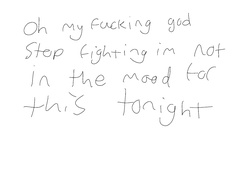 Oh my fucking god
Stop fighting im not
in the mood for
this tonight